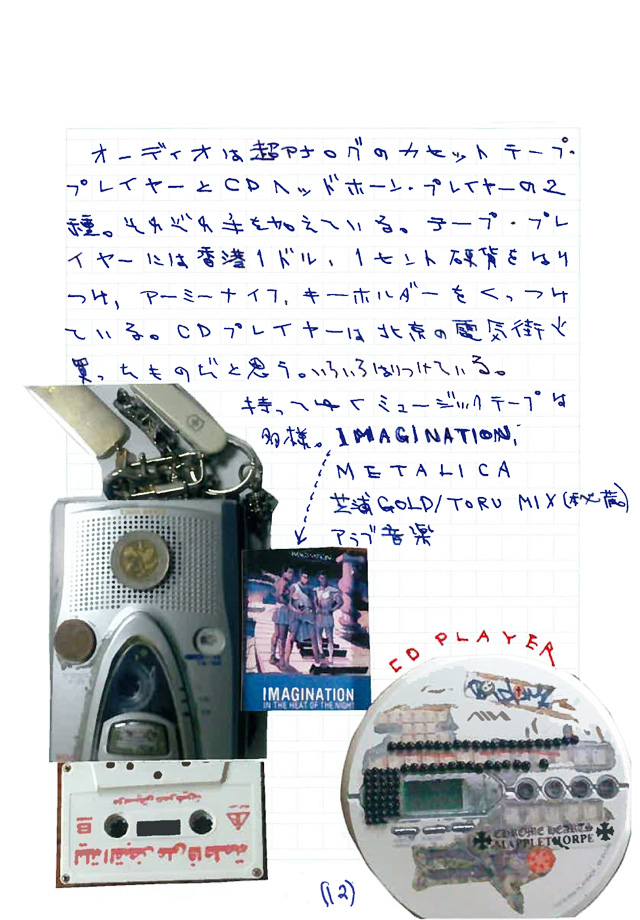 オーディオは超アナログのカセットテープ・
プレイヤーとCDヘッドホーン・プレイヤーの2
種。それぞれ手を加えている。テープ・プレ
イヤーには香港1ドル、1セント硬貨をはり
つけ、アーミーナイフ、キーホルダーをくっつけ
ている。CDプレイヤーは北京の電気街で
買ったものだと思う。いろいろはりつけている。
持ってゆくミュージックテープは
多様。IMAGINATION,
METALICA
芝浦GOLD/TORU MIX(秘蔵)
アラブ音楽
IMAGINATION
IN THE HEAT OF THE NIGHT
CD PLAYER
CHROME HEARTS
MAPPLETHORPE
(12)